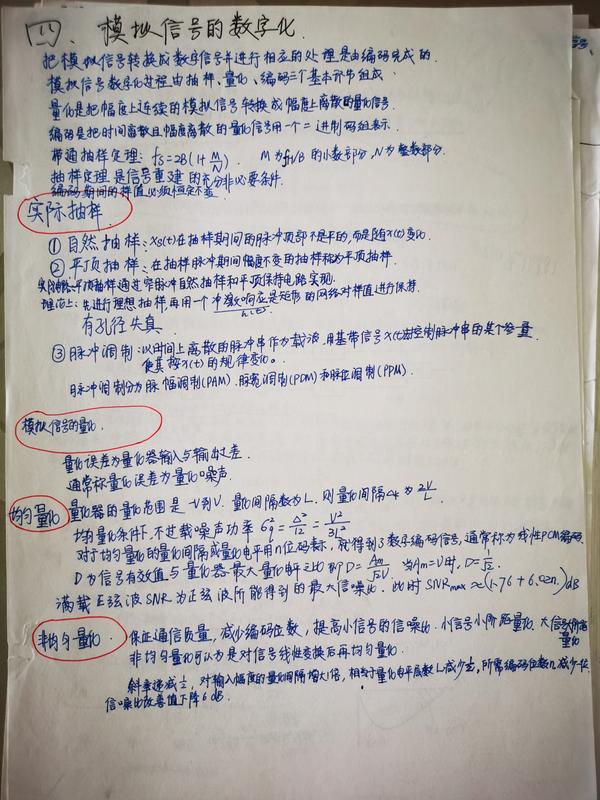 四、模拟信号的数字化.
把模拟信号转换成数字信号并进行相应的处理是由编码完成的.
模拟信号数字化过程由抽样、量化、编码三个基本环节组成.
量化是把幅度上连续的模拟信号转换成幅度上离散的量化信号.
编码是把时间离散且幅度离散的量化信号用一个二进制码组表示.
带通抽样定理: fs=2B(1+M/N). M为fH/B的小数部分,N为整数部分.
抽样定理是信号重建的充分非必要条件.
编码期间的样值必须恒定不变
实际抽样
① 自然抽样: Xs(t)在抽样期间的脉冲顶部不是平的,而是随X(t)变化.
② 平顶抽样: 在抽样脉冲期间幅度不变的抽样称为平顶抽样.
平顶抽样通过窄脉冲自然抽样和平顶保持电路实现.
理论上: 先进行理想抽样,再用一个冲激响应是矩形的网络对样值进行保持.
h(t)
有孔径失真
③ 脉冲调制: 以时间上离散的脉冲串作为载波,用基带信号X(t)去控制脉冲串的某个参量,
使其按X(t)的规律变化。
脉冲调制分为脉幅调制(PAM).脉宽调制(PDM)和脉位调制(PPM).
模拟信号的量化.
量化误差为量化器输入与输出之差.
通常称量化误差为量化噪声.
均匀量化 量化器的量化范围是-V到V. 量化间隔数为L. 则量化间隔Δ为2V/L
均匀量化条件下,不过载噪声功率 σq²=Δ²/12=V²/3L²
对于均匀量化的量化间隔或量化电平用n位码表示,就得到了数字编码信号,通常称为线性PCM编码.
D为信号有效值与量化器最大量化电平之比即D=Am/√2V. 当Am=V时,D=1/√2.
满载正弦波SNR为正弦波所能得到的最大信噪比. 此时 SNRmax≈(1.76+6.02n)dB
非均匀量化. 保证通信质量,减少编码位数,提高小信号的信噪比. 小信号小阶距量化,大信号大阶距量化
非均匀量化可认为是对信号非线性变换后再均匀量化.
斜率递减1/2,对输入幅度的量化间隔增大1倍,相当于量化电平底数L减少1/2,所需编码位数n减少一位.
信噪比改善值下降6dB.